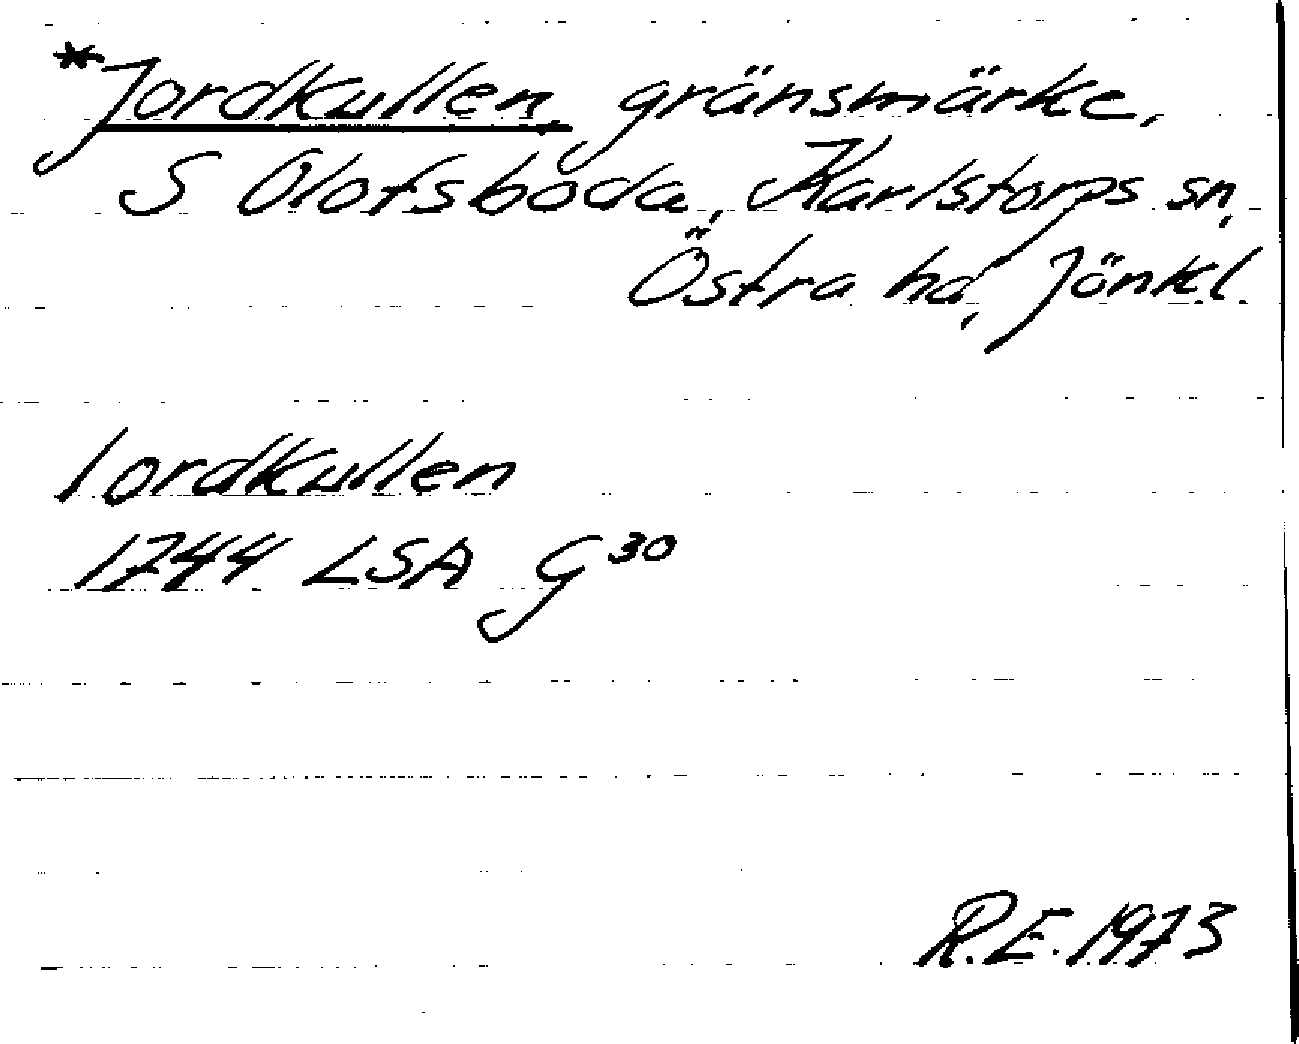 *Jordkullen, gränsmärke,
S Olofsboda, Karlstorps sn,
Östra hd, Jönk.l.
Iordkullen
1744 LSA G 30
R.E. 1973